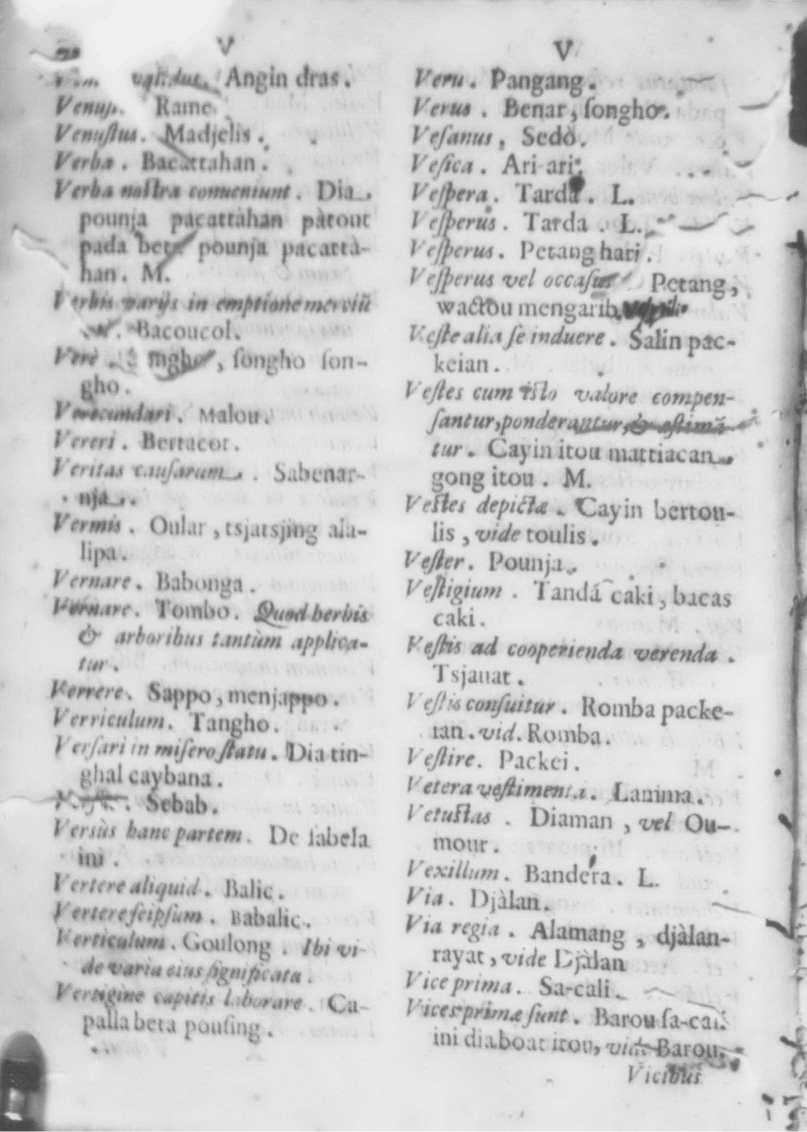 V
validus. Angin dras.
Venus. Rame.
Venustus. Madjelis.
Verba. Bacattahan.
Verba nostra conueniunt. Dia
pounja pacattàhan pàtout
pada beta pounja pacattà-
han. M.
Verbis varijs in emptione merciũ
Bacoucol.
Vere. songho son-
gho.
Verecundari. Malou.
Vereri. Bertacot.
Veritas causarum. Sabenar-
nja.
Vermis. Oular, tsjatsjing ala-
lipa.
Vernare. Babonga.
Vernare. Tombo. Quod herbis
& arboribus tantùm applica-
tur.
Verrere. Sappo, menjappo.
Verriculum. Tangho.
Versari in misero statu. Dia tin-
ghal caybana.
Sebab.
Versùs hanc partem. De sabela
ini.
Vertere aliquid. Balic.
Vertere seipsum. Babalic.
Verticulum. Goulong. Ibi vi-
de varia eius significata.
Vertigine capitis laborare. Ca-
palla beta pousing.
V
Veru. Pangang.
Verus. Benar, songho.
Vesanus, Sedò.
Vesica. Ari-ari.
Vespera. Tarda. L.
Vesperus. Tarda. L.
Vesperus. Petang hari.
Vesperus vel occasus Petang,
wactou mengarib,
Veste alia se induere. Salin pac-
keian.
Vestes cum isto valore compen-
santur, ponderantur, & æstimã
tur. Cayin itou mattiacan
gong itou. M.
Vestes depictæ. Cayin bertou-
lis, vide toulis.
Vester. Pounja.
Vestigium. Tandá caki, bacas
caki.
Vestis ad cooperienda verenda.
Tsjauat.
Vestis consuitur. Romba packe-
ian. vid. Romba.
Vestire. Packei.
Vetera vestimenta. Lanima.
Vetustas. Diaman, vel Ou-
mour.
Vexillum. Bandera. L.
Via. Djàlan.
Via regia. Alamang, djàlan-
rayat, vide Djàlan
Vice prima. Sa-cali.
Vices primæ sunt. Barou sa-cali
ini dia boat itou, vide Barou.
Vicibus